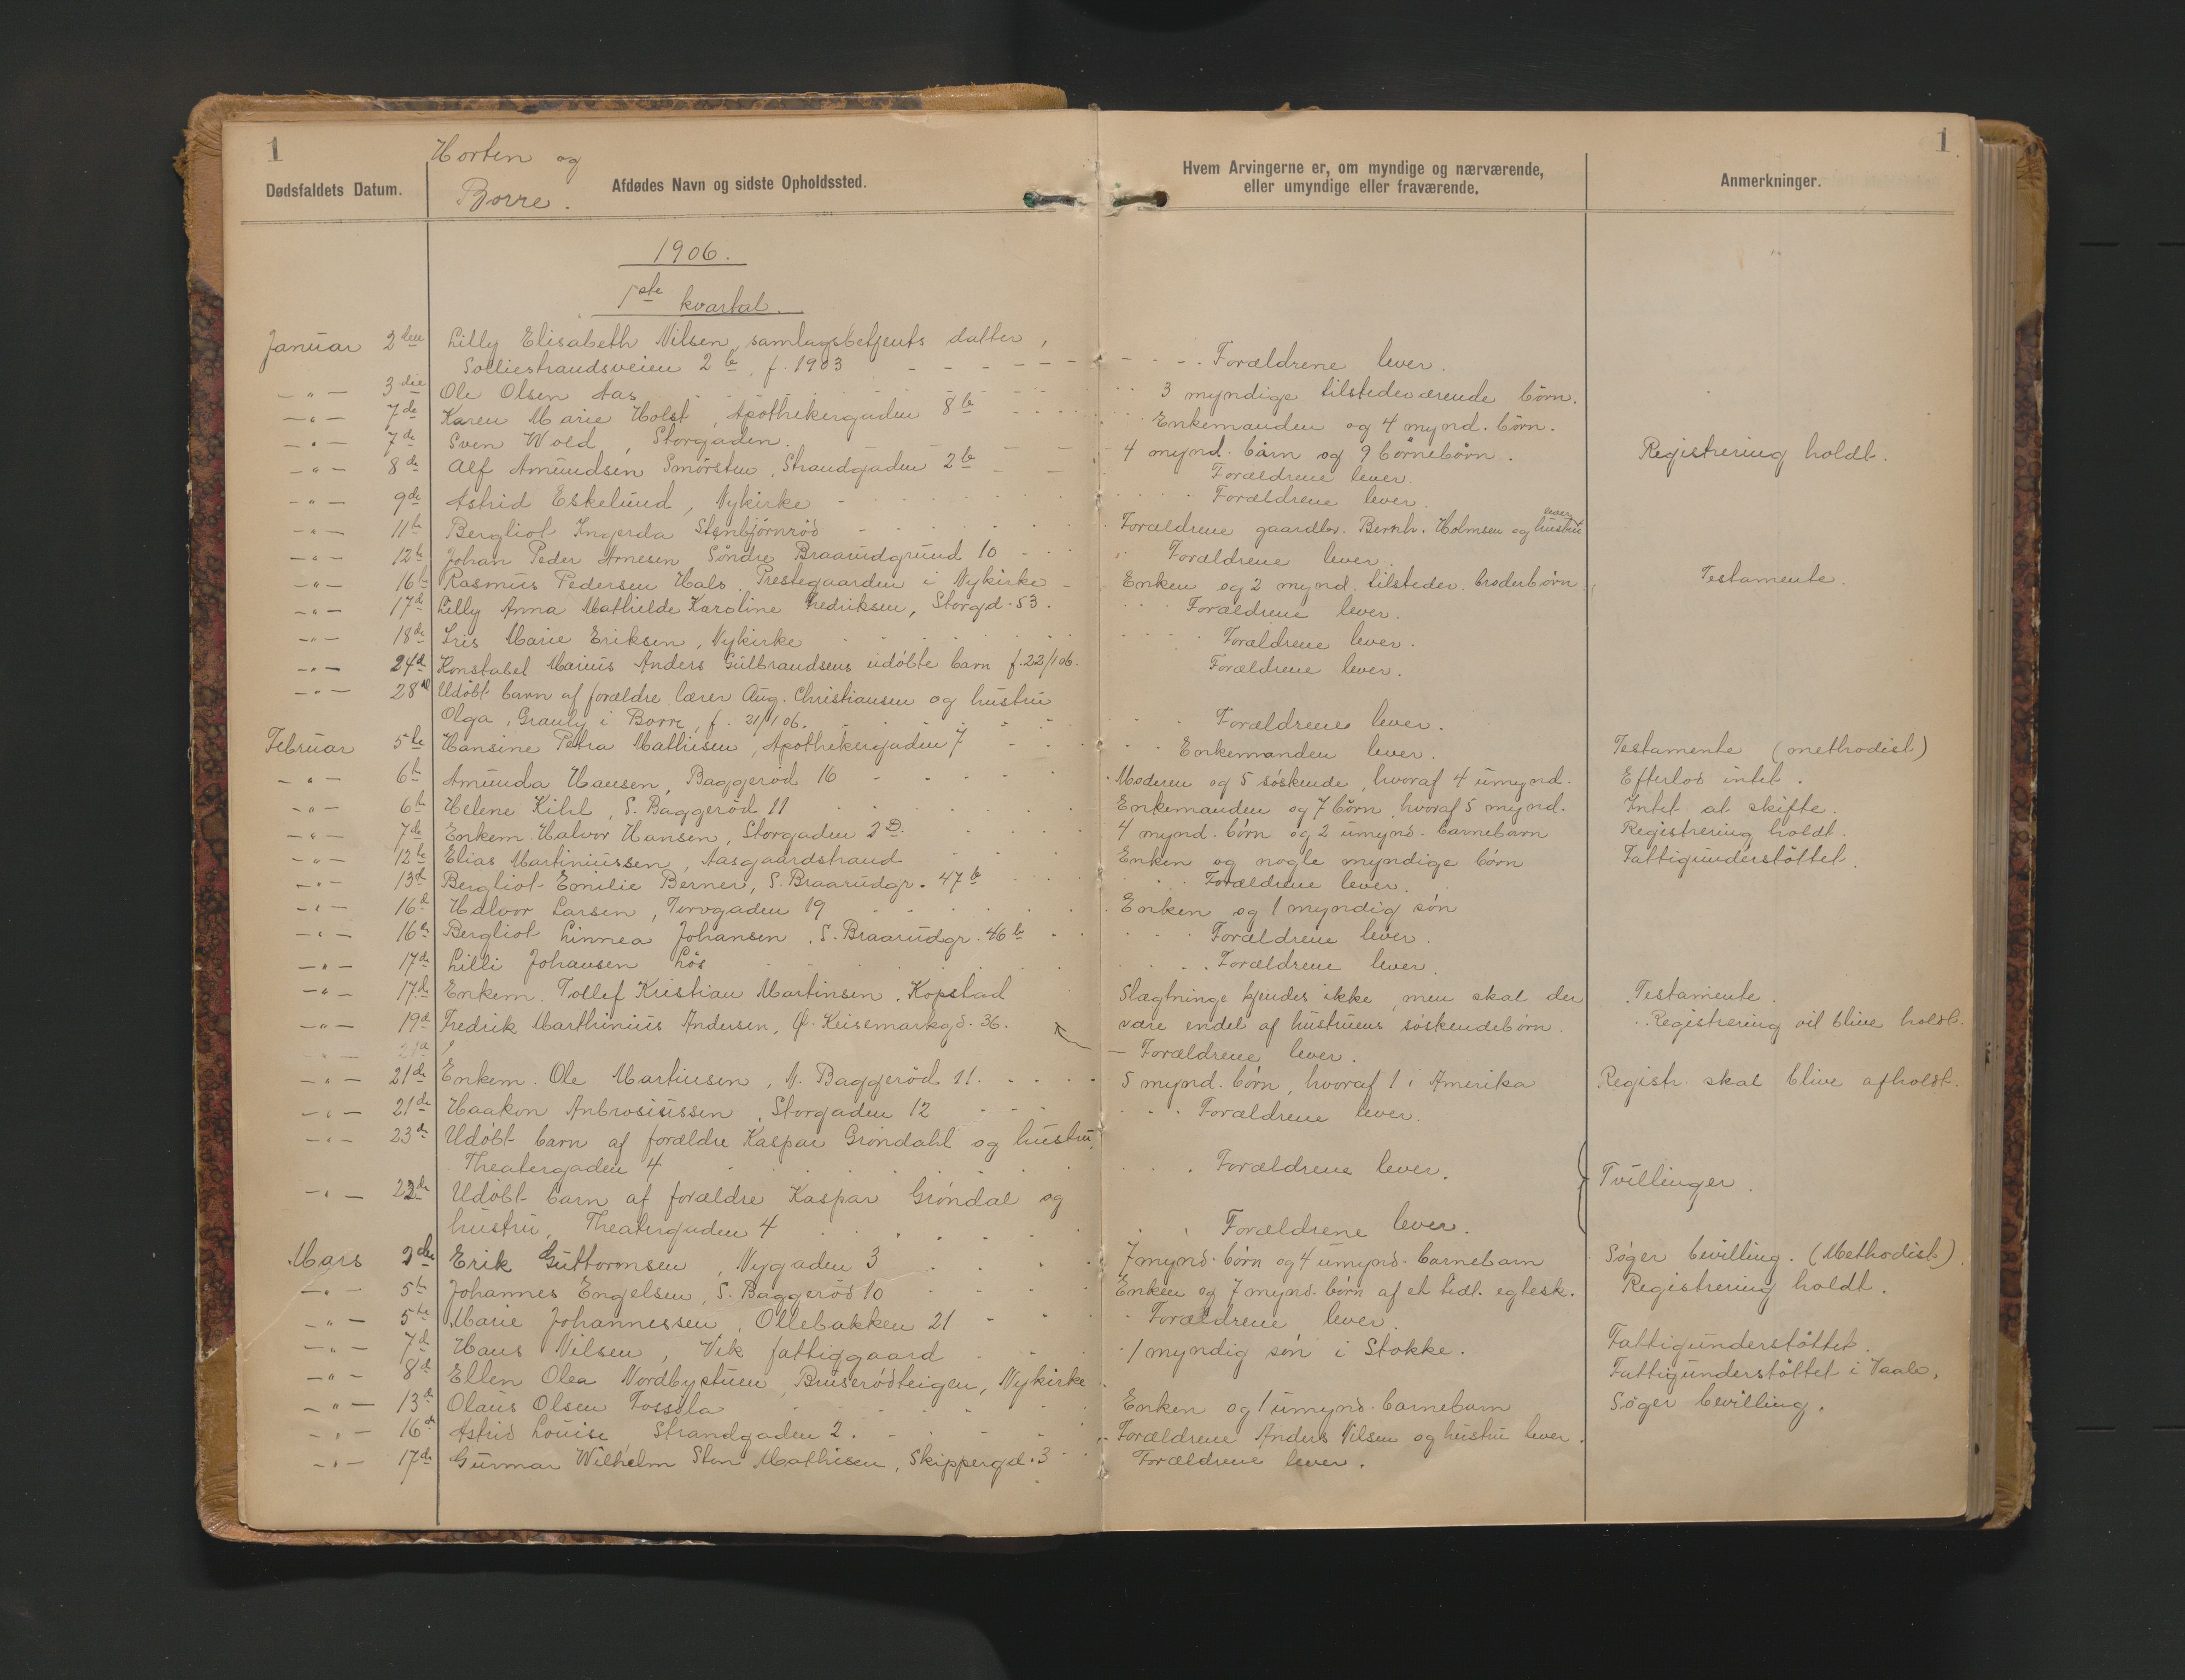 1
Horten og
Borre.
Dødsfaldets Datum. Afdødes Navn og sidste Opholdssted. Hvem Arvingerne er, om myndige og nærværende, eller umyndige eller fraværende. Anmerkninger.
1
1906.
1ste kvartal.
Januar 2den Lilly Elisabeth Nilsen, samlagsbetjents datter,
Solliestrandsveien 2b, f. 1903 - - - Forældrene lever.
- " - 3die Ole Olsen Aas 3 myndige tilstedeværende børn.
- " - 7de Karen Marie Holst, Apothekergaden 8b Enkemanden og 4 mynd. børn.
- " - 7de Sven Wold, Storgaden. 4 mynd. børn og 9 børnebørn. Registrering holdt.
- " - 8de Alf Amundsen Smørsten, Strandgaden 2b Forældrene lever.
- " - 9de Astrid Eskelund, Nykirke Forældrene lever.
- " - 11te Bergliot Ingerda Stenbjørnrød Forældrene gaardbr. Bernh. Holmsen og hustru lever
- " - 12te Johan Peder Arnesen Søndre Braarudgrund 10 Forældrene lever.
- " - 16de Rasmus Pedersen Hals, Prestegaarden i Nykirke Enken og 2 mynd. tilstedev. broderbørn Testamente.
- " - 17de Lilly Anna Mathilde Karoline Fredriksen, Storgd. 53. Forældrene lever.
- " - 18de Iris Marie Eriksen, Nykirke Forældrene lever.
- " - 24de Konstabel Marius Anders Gulbrandsens udøbte barn f. 22/1 06. Forældrene lever.
- " - 28de Udøbt barn af forældre lærer Aug. Christiansen og hustru
Olga, Grauly i Borre, f. 21/1 06. Forældrene lever.
Februar 5te Hansine Petra Mathisen, Apothekergaden 7 Enkemanden lever. Testamente (methodist)
- " - 6te Amunda Hansen, Baggerød 16 Moderen og 5 søskende, hvoraf 4 umynd. Efterlod intet.
- " - 6te Helene Kihl, S. Baggerød 11 Enkemanden og 7 børn, hvoraf 5 mynd. Intet at skifte.
- " - 7de Enkem. Halvor Hansen, Storgaden 2D. 4 mynd. børn og 2 umynd. barnebarn Registrering holdt.
- " - 12te Elias Martiniussen, Aasgaardstrand Enken og nogle myndige børn Fattigunderstøttet.
- " - 13de Bergliot Emilie Berner, S. Braarudgr. 47b Forældrene lever.
- " - 16de Halvor Larsen, Torvgaden 19 Enken og 1 myndig søn
- " - 16de Bergliot Linnea Johansen, S. Braarudgr. 46b Forældrene lever.
- " - 17de Lilli Johansen Løs Forældrene lever.
- " - 17de Enkem. Tollef Kristian Martinsen, Kopstad Slægtninge kjendes ikke, men skal der Testamente.
- " - 19de Fredrik Marthinius Andersen, Ø. Keisemarkgd. 36. være endel af hustruens søskendebørn. Registrering vil blive holdt.
— Forældrene lever.
- " - 21de Enkem. Ole Martinsen, N. Baggerød 11. 5 mynd. børn, hvoraf 1 i Amerika Registr. skal blive afholdt.
- " - 21de Haakon Anbrosiussen, Storgaden 12 Forældrene lever.
- " - 23de Udøbt barn af forældre Kaspar Grøndahl og hustru,
Theatergaden 4 Forældrene lever.
Tvillinger.
- " - 22de Udøbt barn af forældre Kaspar Grøndal og
hustru, Theatergaden 4 Forældrene lever.
Mars 2den Erik Guttormsen, Nygaden 3 7 mynd. børn og 4 umynd. barnebarn Søger bevilling. (Methodist)
- " - 5te Johannes Engelsen, S. Baggerød 10 Enken og 7 mynd. børn af et tidl. egtesk. Registrering holdt.
- " - 5te Marie Johannessen, Ollebakken 21 Forældrene lever.
- " - 7de Hans Nilsen, Vik fattiggaard 1 myndig søn i Stokke. Fattigunderstøttet.
- " - 8de Ellen Olea Nordbystuen, Bruserødteigen, Nykirke Fattigunderstøttet i Vaale.
- " - 13de Olaus Olsen Fossola Enken og 1 umynd. barnebarn Søger bevilling.
- " - 16de Astrid Louise Strandgaden 2. Forældrene Anders Nilsen og hustru lever.
- " - 17de Gunnar Wilhelm Sten Mathisen, Skippergd. 3 Forældrene lever.